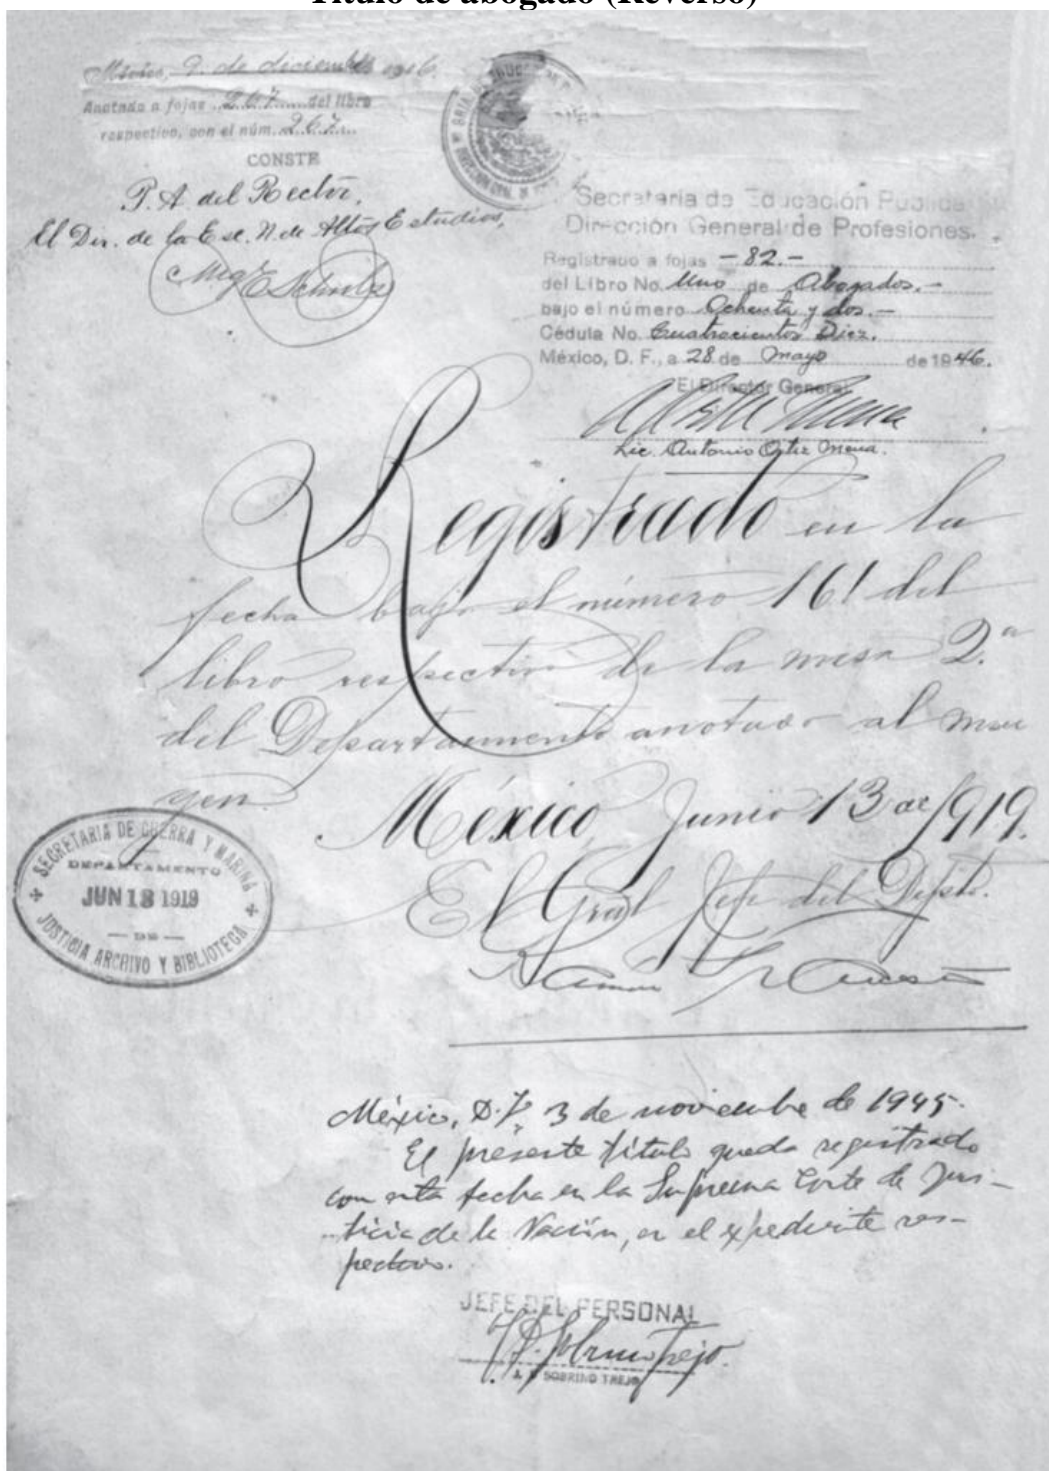 Título de abogado (Reverso)
México, 9. de diciembre 1916.
Anotado a fojas 267 del libro
respectivo, con el núm. 267
CONSTE
P. A. del Rector,
El Dir. de la Esc. N. de Altos Estudios,
Secretaria de Educación Publica
Dirección General de Profesiones.
Registrado a fojas - 82.-
del Libro No. Uno de Abogados.-
bajo el número Ochenta y dos.-
Cédula No. Cuatrocientos Diez.
México, D. F., a 28 de Mayo de 1946.
El Director General
Lic. Antonio Ortiz Mena.
Registrado en la
fecha bajo el número 161 del
libro respectivo de la mesa 2.a
del Departamento anotado al mar
gen.
México, Junio 13 de 1919.
El Gral Jefe del Depto.
SECRETARIA DE GUERRA Y MARINA
DEPARTAMENTO
JUN 13 1919
- DE -
JUSTICIA ARCHIVO Y BIBLIOTECA.
México, D. F. 3 de noviembre de 1945.
El presente título queda registrado
con esta fecha en la Suprema Corte de Jus-
ticia de la Nación, en el expediente res-
pectivo.
JEFE DEL PERSONAL
SOBRINO TREJO